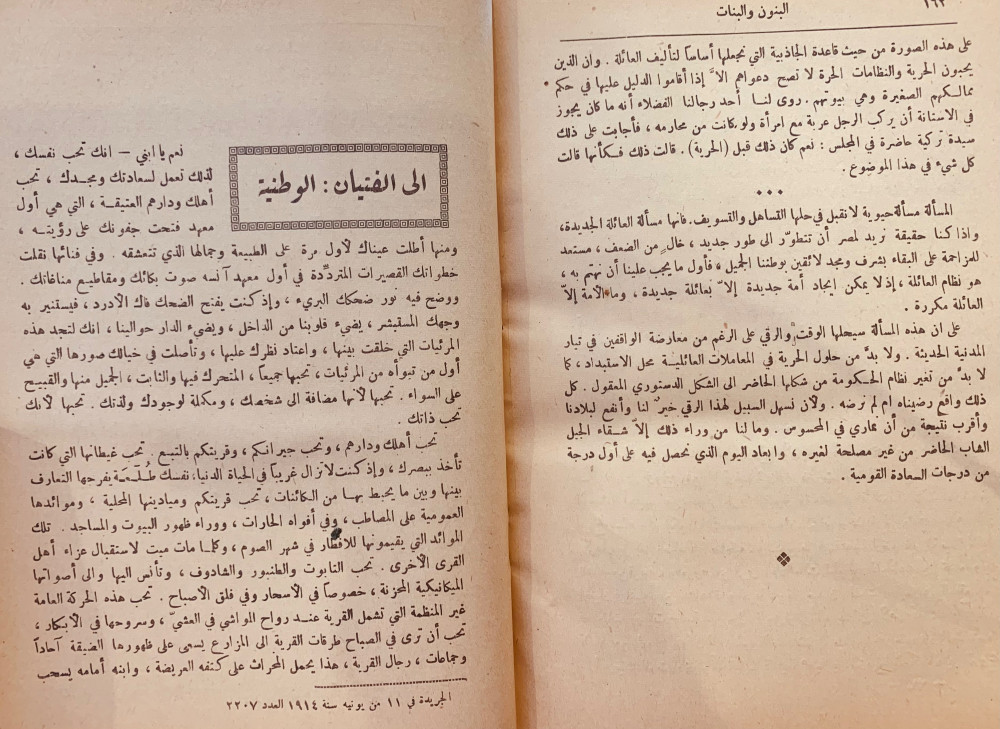 ١٦٢
البنون والبنات
على هذه الصورة من حيث قاعدة الجاذبية التي نجعلها أساسا لتأليف العائلة . وان الذين
يحبون الحرية والنظامات الحرة لا تصح دعواهم الاَّ إذا أقاموا الدليل عليها في حكم
ممالكهم الصغيرة وهي بيوتهم . روى لنا أحد رجالنا الفضلاء أنه ما كان يجوز
في الاستانة أن يركب الرجل عربة مع امرأة ولو كانت من محارمه ، فأجابت على ذلك
سيدة تركية حاضرة في المجلس : نعم كان ذلك قبل (الحرية) . قالت ذلك فكأنها قالت
كل شيء في هذا الموضوع .
• • •
المسألة مسألة حيوية لا نقبل في حلها التساهل والتسويف. فانها مسألة العائلة الجديدة،
واذا كنا حقيقة نريد لمصر أن تتطوّر الى طور جديد ، خال من الضعف ، مستعد
للمزاحمة على البقاء بشرف ومجد لائقين بوطننا الجميل ، فأول ما يجب علينا أن نهتم به ،
هو نظام العائلة ، إذ لا يمكن ايجاد أمة جديدة إلاّ بعائلة جديدة ، وما الأمة إلاّ
العائلة مكررة .
على ان هذه المسألة سيحلها الوقت والرقي على الرغم من معارضة الواقفين في تيار
المدنية الحديثة . ولا بدَّ من حلول الحرية في المعاملات العائلية محل الاستبداد ، كما
لا بدَّ من تغير نظام الحكومة من شكلها الحاضر الى الشكل الدستوري المعقول . كل
ذلك واقع رضيناه ام لم نرضه . ولأن نسهل السبيل لهذا الرقي خيرٌ لنا وأنفع لبلادنا
وأقرب نتيجة من أن نماري في المحسوس . وما لنا من وراء ذلك إلاّ شقاء الجيل
الشاب الحاضر من غير مصلحة لغيره ، وابعاد اليوم الذي نحصل فيه على أول درجة
من درجات السعادة القومية .
الى الفتيان : الوطنية
نعم يا ابني — انك تحب نفسك ،
لذلك تعمل لسعادتك ومجدك ، تحب
أهلك ودارهم العتيقة ، التي هي أول
معهد فتحت جفونك على رؤيته ،
ومنها أطلت عيناك لأول مرة على الطبيعة وجمالها الذي تتعشقه . وفي فنائها نقلت
خطواتك القصيرات المتردِّدة في أول معهد آنسه صوت بكائك ومقاطيع مناغاتك .
ووضح فيه نور ضحكك البريء ، وإذ كنت يفتح الضحك فاك الأدرد ، فيستنير به
وجهك المستبشر ، يضيء قلوبنا من الداخل ، ويضيء الدار حوالينا ، انك لتجد هذه
المرئيات التي خلقت بينها ، واعتاد نظرك عليها ، وتأصلت في خيالك صورها التي هي
أول من تبوأه من المرئيات ، تحبها جميعاً ، المتحرك فيها والثابت ، الجميل منها والقبيح
على السواء . تحبها لأنها مضافة الى شخصك ، ومكملة لوجودك ولذتك . تحبها لأنك
تحب ذاتك .
تحب أهلك ودارهم ، وتحب جيرانكم ، وقريتكم بالتبع . تحب غيطانها التي كانت
تأخذ ببصرك ، وإذ كنت لا تزال غريباً في الحياة الدنيا، نفسك طُلَعَة يفرحها التعارف
بينها وبين ما يحيط بها من الكائنات ، تحب قريتكم وميادينها المحلية ، وموائدها
العمومية على المصاطب ، وفي أفواه الحارات ، ووراء ظهور البيوت والمساجد . تلك
الموائد التي يقيمونها للافطار في شهر الصوم ، وكلما مات ميت لاستقبال عزاء أهل
القرى الأخرى . تحب التابوت والطنبور والشادوف ، وتأنس اليها والى أصواتها
الميكانيكية المحزنة ، خصوصاً في الأسحار وفي فلق الأصباح . تحب هذه الحركة العامة
غير المنظمة التي تشمل القرية عند رواح المواشي في العشيّ ، وسروحها في الأبكار ،
تحب أن ترى في الصباح طرقات القرية الى المزارع يسعى على ظهورها الضيقة آحاداً
وجماعات ، رجال القرية ، هذا يحمل المحراث على كتفه العريضة ، وابنه أمامه يسحب
الجريدة في ١١ من يونيه سنة ١٩١٤ العدد ٢٢٠٧